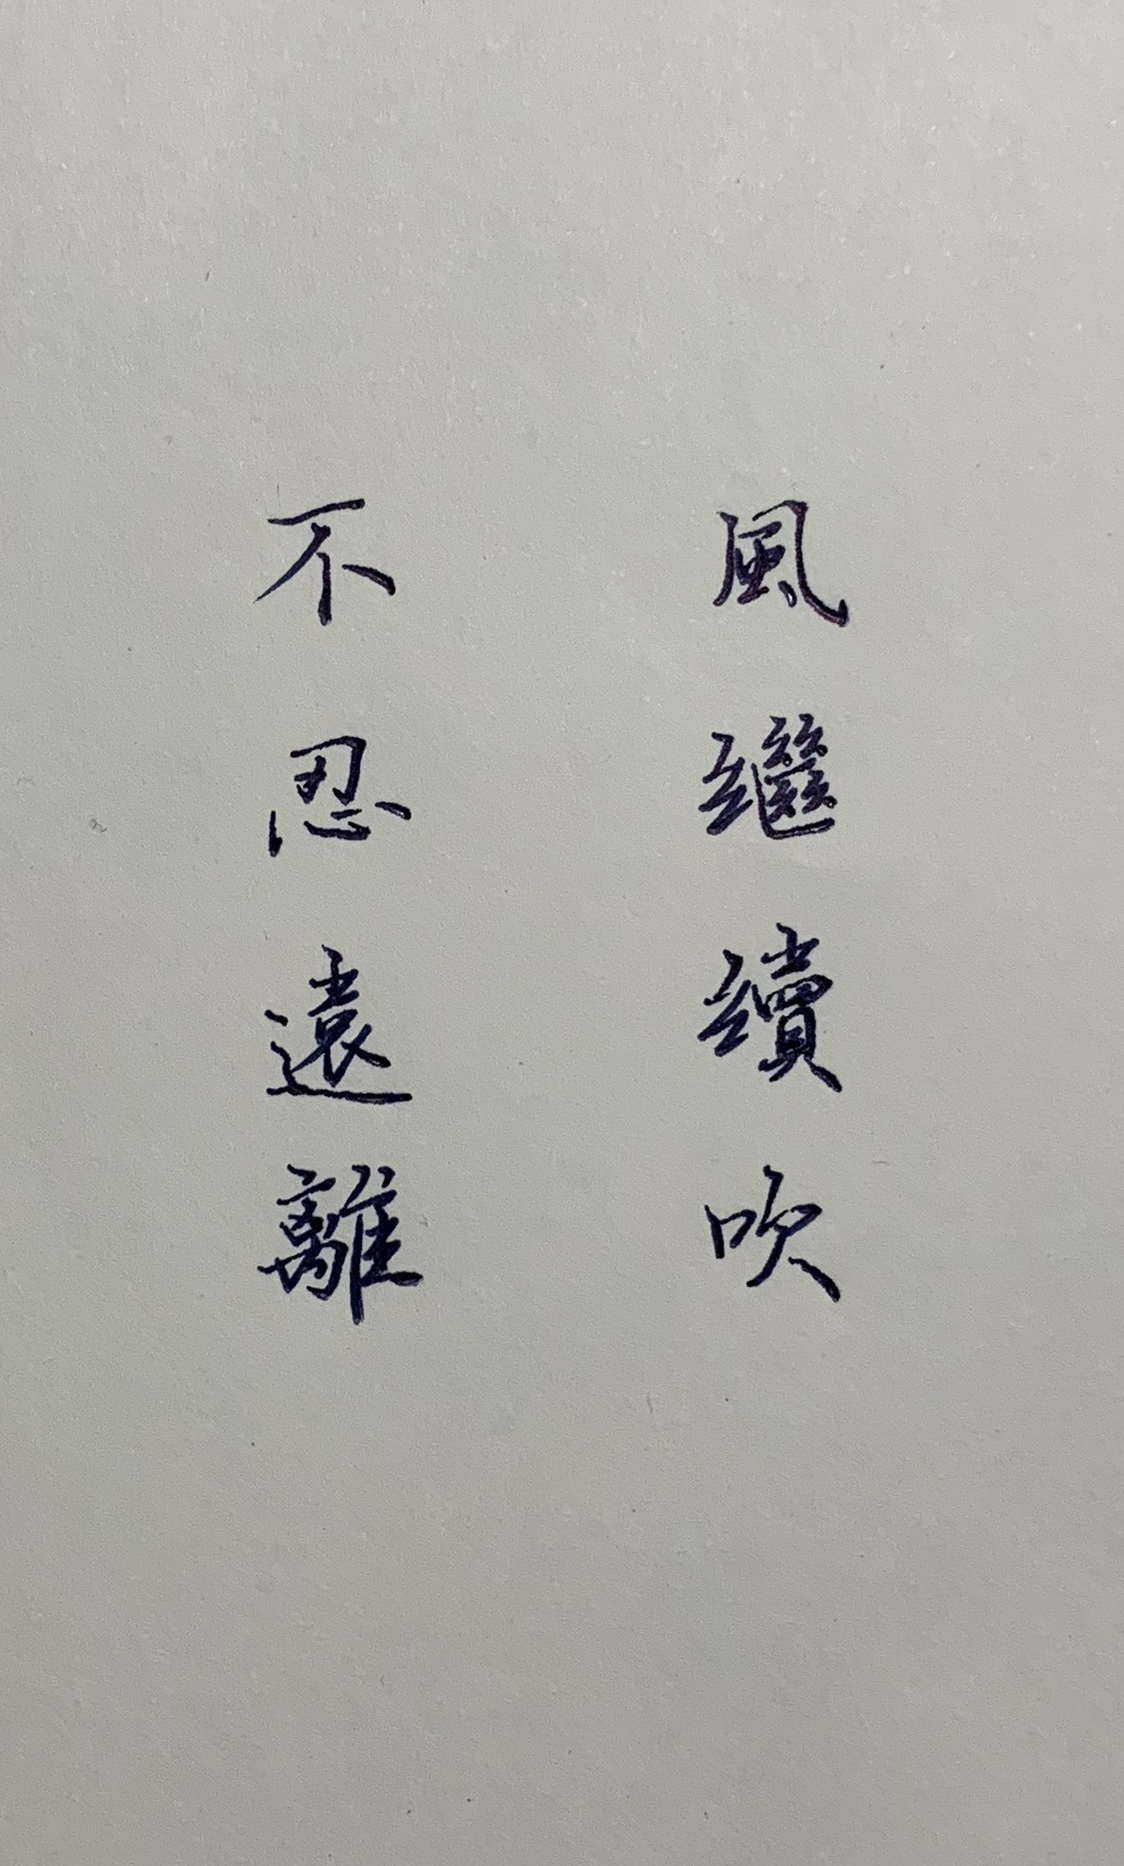 風繼續吹
不忍遠離